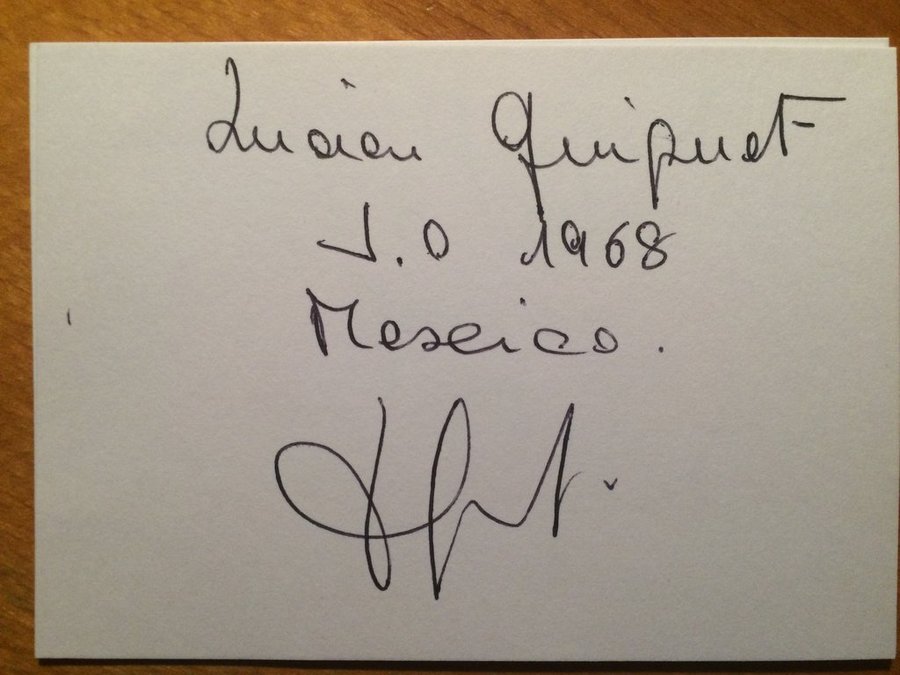 Lucien Guiguet
J.O 1968
Mexico.